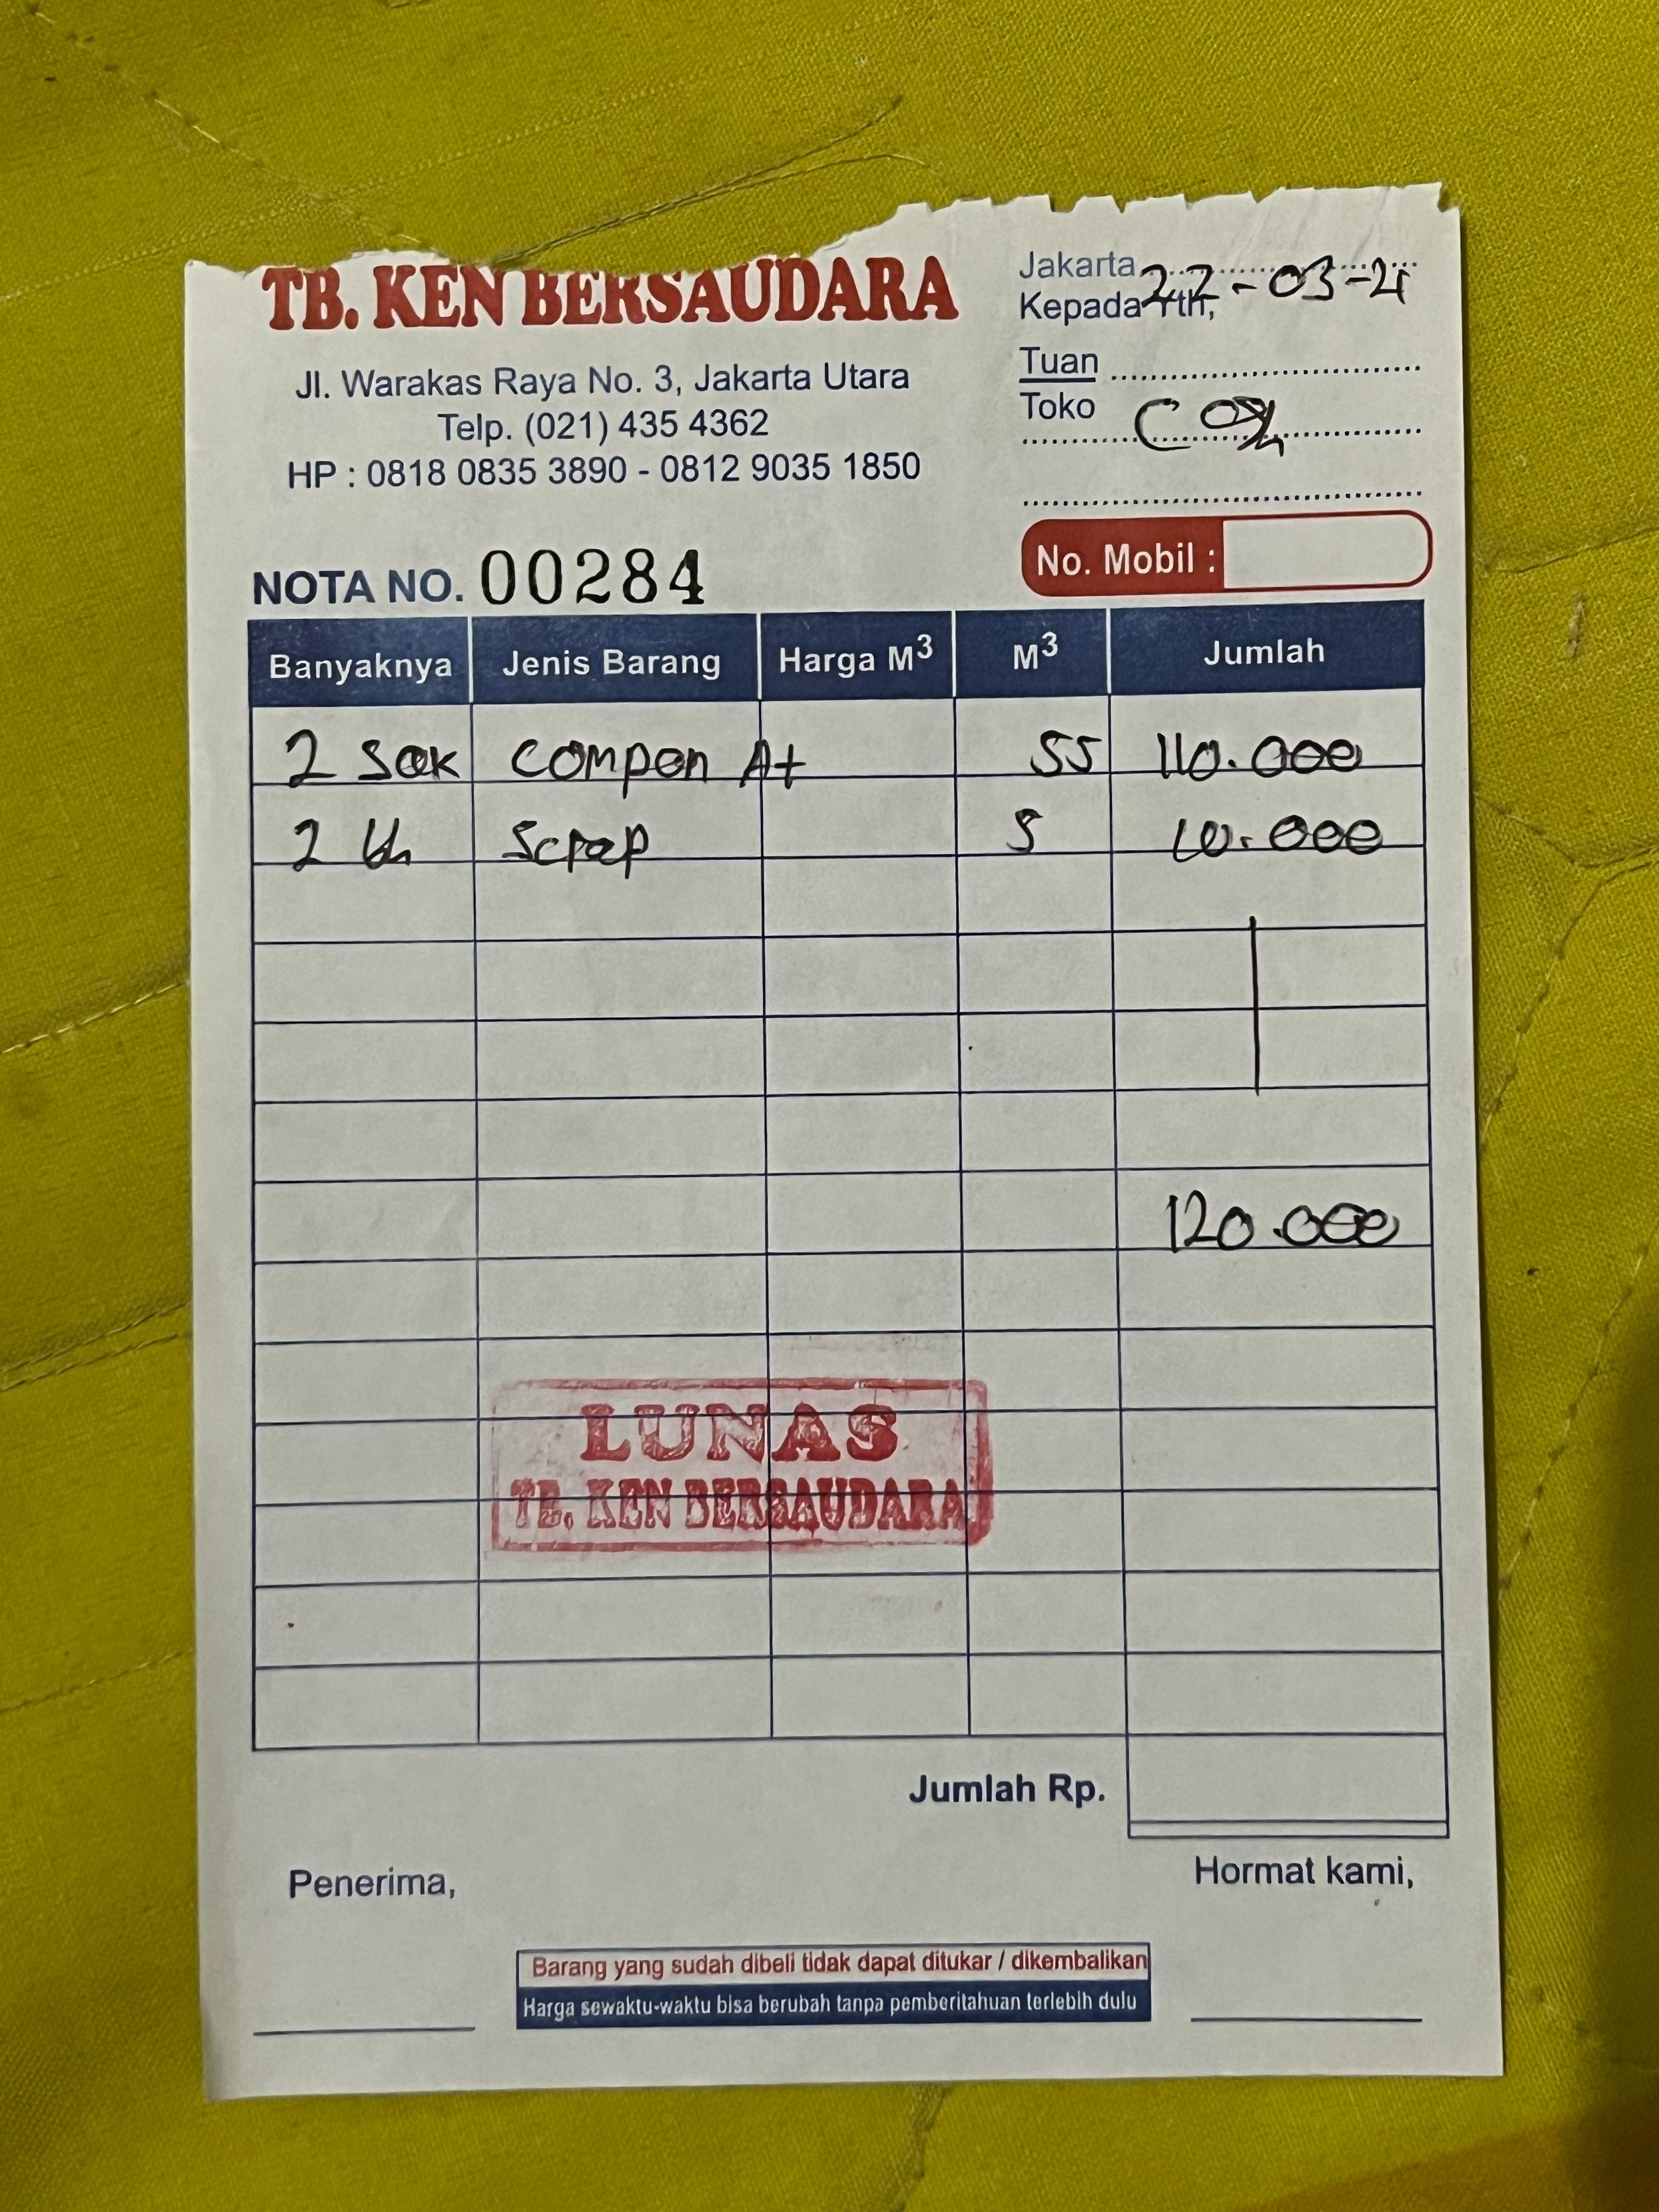 TB. KEN BERSAUDARA
Jl. Warakas Raya No. 3, Jakarta Utara
Telp. (021) 435 4362
HP : 0818 0835 3890 - 0812 9035 1850
Jakarta 22-03-
Kepada Yth,
Tuan
Toko
No. Mobil :
NOTA NO. 00284
Banyaknya Jenis Barang Harga M³ M³ Jumlah
2 Sak Compon A+ 55 110.000
2 Scrap 5 10.000
120.000
LUNAS
TB. KEN BERSAUDARA
Jumlah Rp.
Penerima, Hormat kami,
Barang yang sudah dibeli tidak dapat ditukar / dikembalikan
Harga sewaktu-waktu bisa berubah tanpa pemberitahuan terlebih dulu